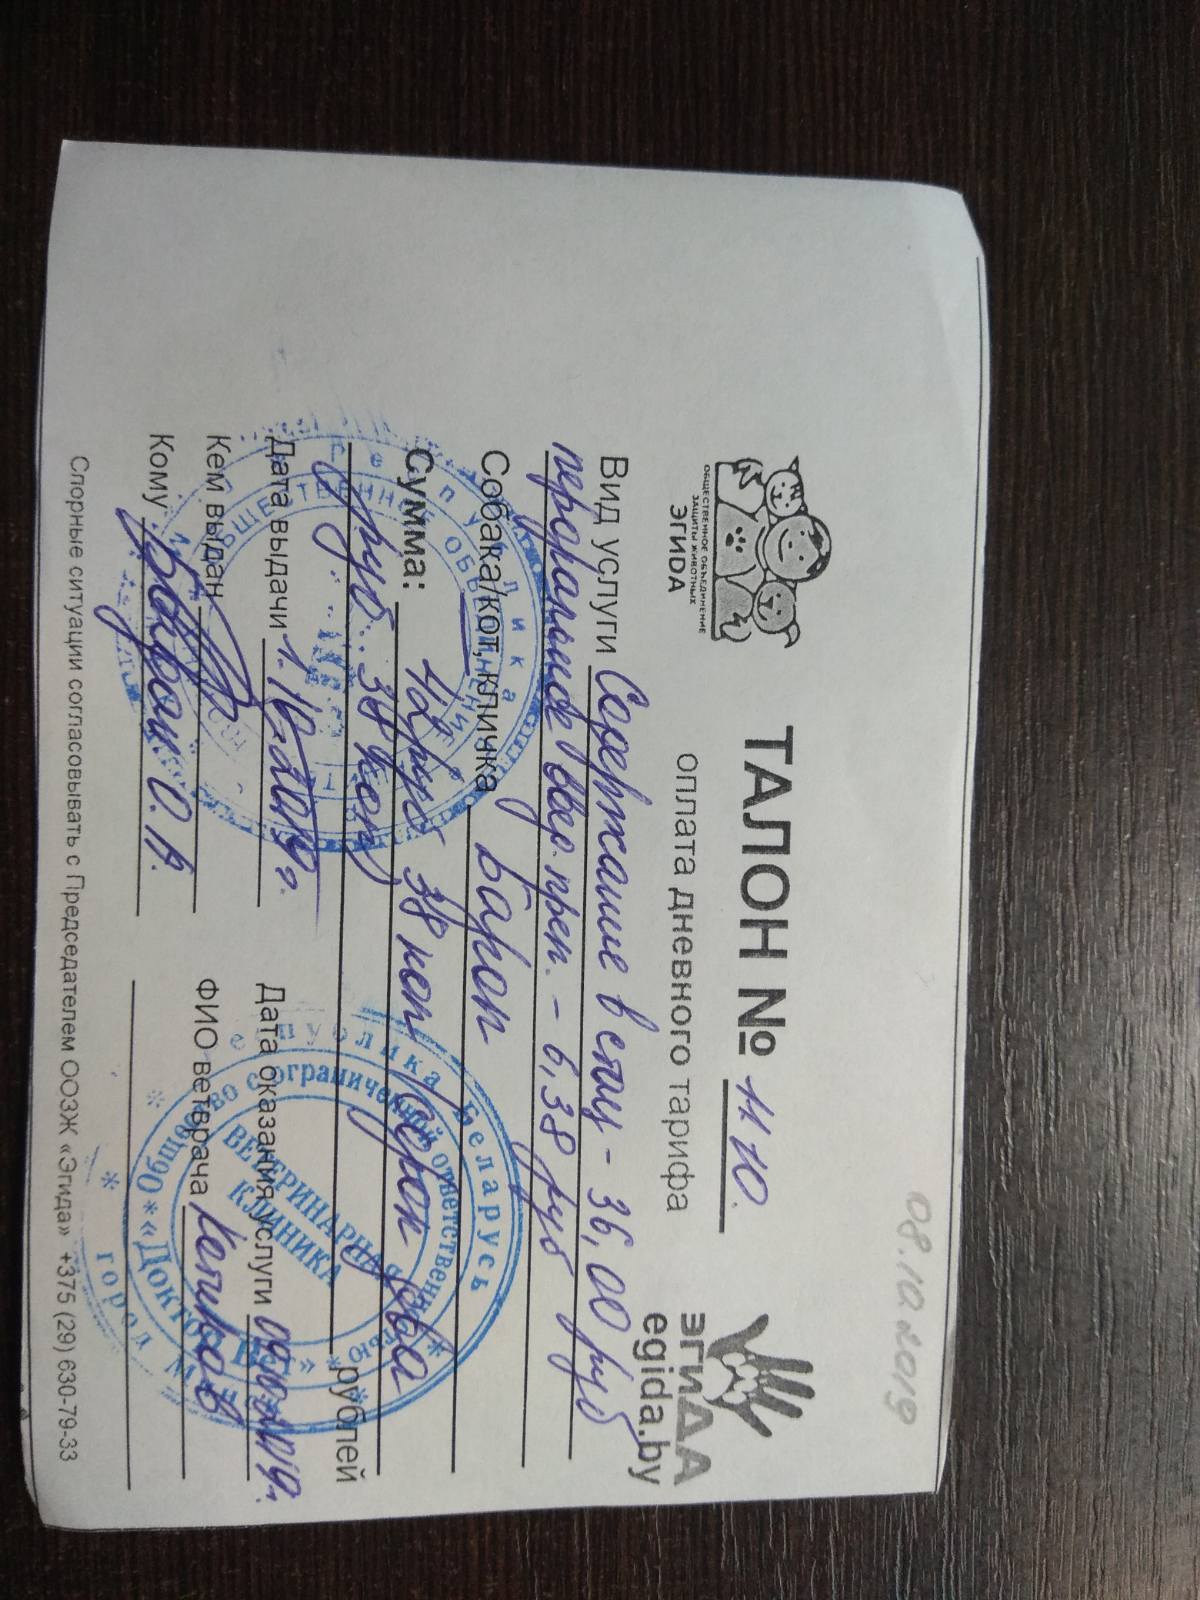 08.10.2019
ТАЛОН № 1110.
оплата дневного тарифа
ОБЩЕСТВЕННОЕ ОБЪЕДИНЕНИЕ
ЗАЩИТЫ ЖИВОТНЫХ
ЭГИДА
эгиДА
egida.by
Вид услуги Содержание в стац - 36,00 руб
пероральное введ. преп. - 6,38 руб
Собака/кот, кличка Барон
Сумма: 42 руб 38 коп (сорок два
руб. 38 коп) рублей
Дата выдачи 1.10.2019 г.
Дата оказания услуги
Кем выдан
ФИО ветврача
Кому О.А.
Спорные ситуации согласовывать с Председателем ООЗЖ «Эгида» +375 (29) 630-79-33
Республика Беларусь
Общество с ограниченной ответственностью
ВЕТЕРИНАРНАЯ
КЛИНИКА